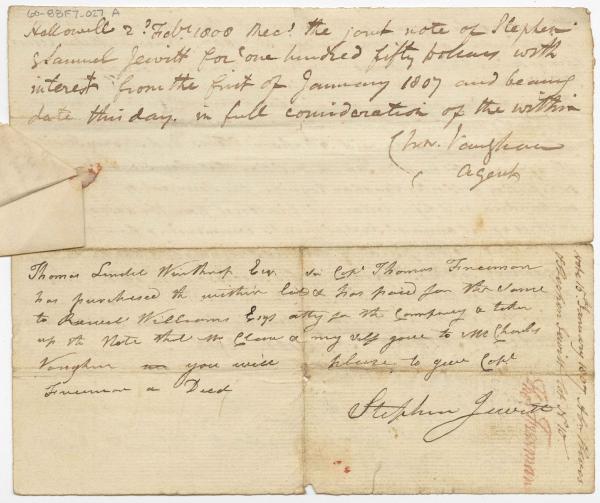 60-88F7.027 A
Hallowell 2d Feby 1808 Recd. the joint note of Stephen
& Samuel Jewitt for one hundred fifty Dollars with
interest from the first of January 1807 and bearing
date this day. in full consideration of the within
Chas. Vaughan
Agent
Thomas Lindel Winthrop Esq. Sir Capt. Thomas Freeman
has purchased the within Lot & has paid for the same
to Reuel Williams Esqr atty for the Company & taken
up the Note that Mr & my self gave to Mr Charls
Vaughn you will please to give Capt.
Freeman a Deed
Stephen Jewitt
January 1807
Stephen Jewitt Lot No
Freeman